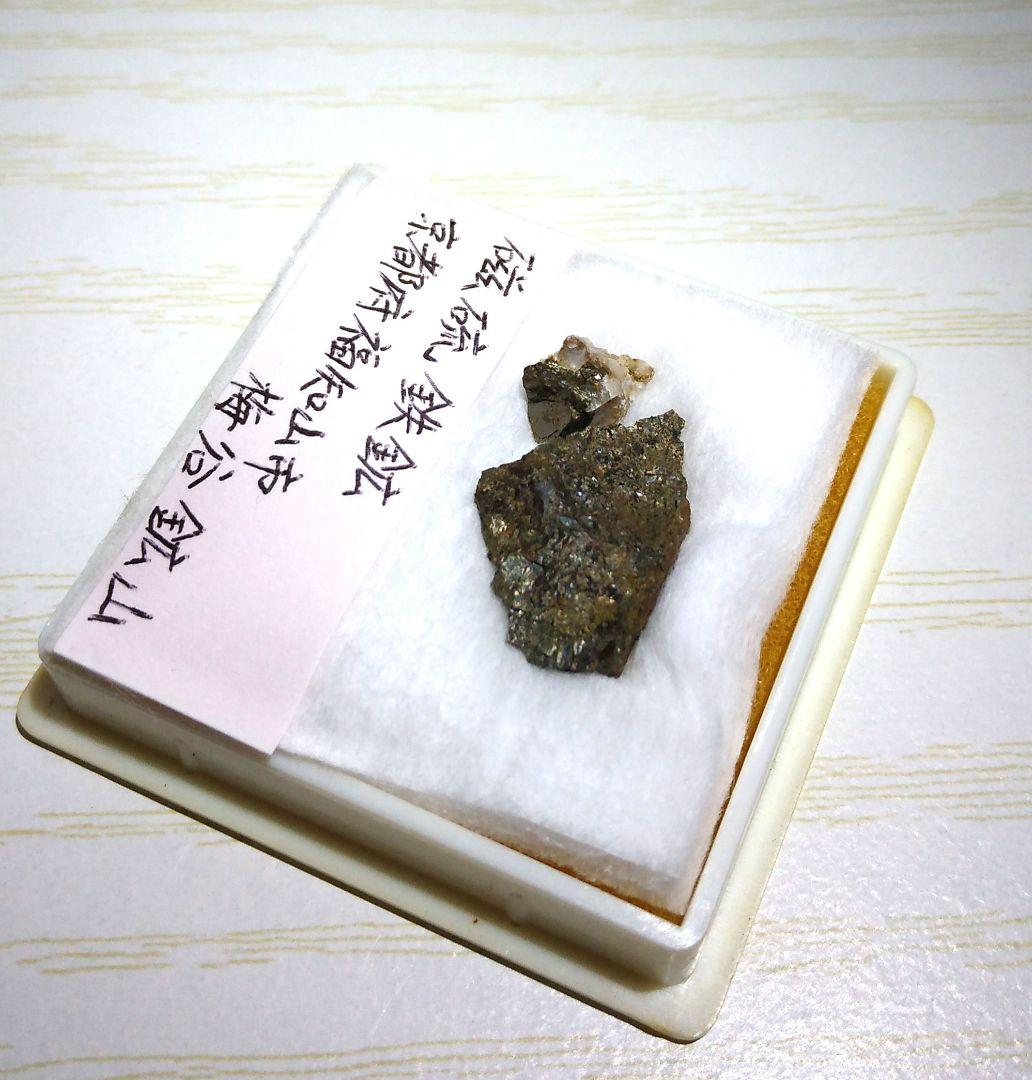 磁硫鉄鉱
京都府福知山市
梅谷鉱山